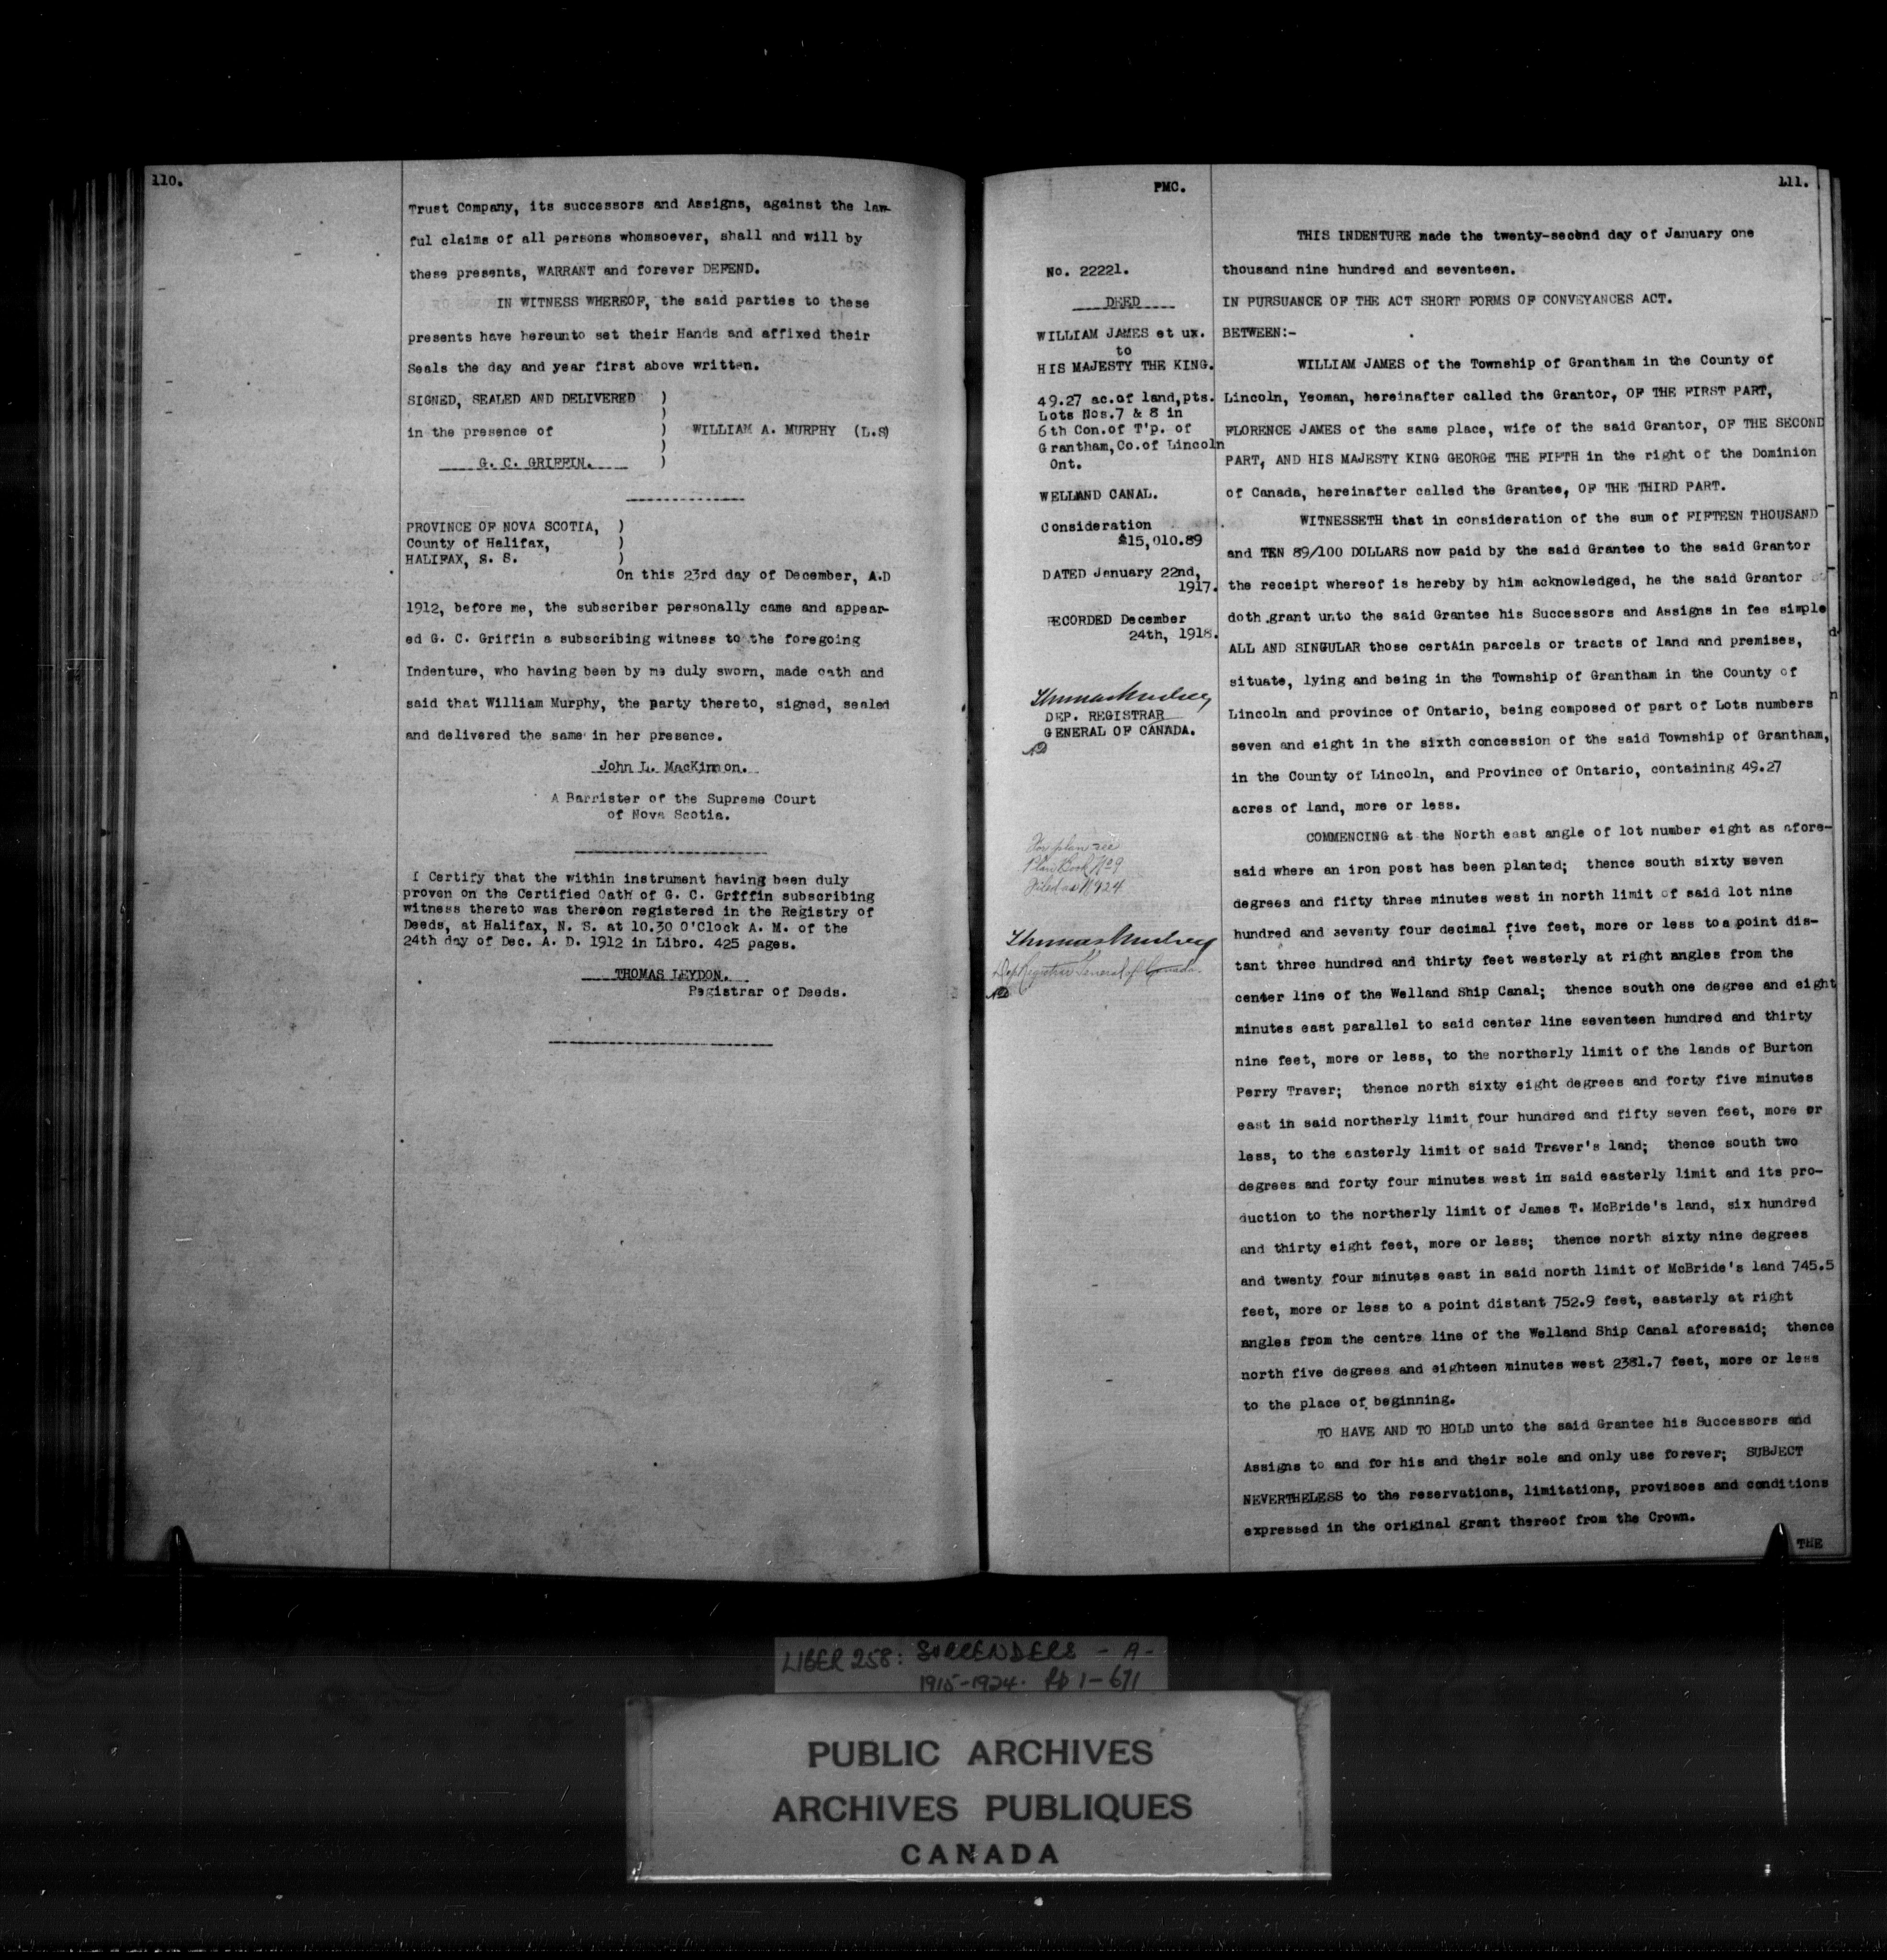 110.
Trust Company, its successors and Assigns, against the law-
ful claims of all persons whomsoever, shall and will by
these presents, WARRANT and forever DEFEND.
IN WITNESS WHEREOF, the said parties to these
presents have hereunto set their Hands and affixed their
Seals the day and year first above written.
SIGNED, SEALED AND DELIVERED )
)
in the presence of ) WILLIAM A. MURPHY (L.S)
)
G. C. GRIFFIN. )
PROVINCE OF NOVA SCOTIA, )
County of Halifax, )
HALIFAX, S. S. )
On this 23rd day of December, A.D
1912, before me, the subscriber personally came and appear-
ed G. C. Griffin a subscribing witness to the foregoing
Indenture, who having been by me duly sworn, made oath and
said that William Murphy, the party thereto, signed, sealed
and delivered the same in her presence.
John L. MacKinnon.
A Barrister of the Supreme Court
of Nova Scotia.
I Certify that the within instrument having been duly
proven on the Certified Oath of G. C. Griffin subscribing
witness thereto was thereon registered in the Registry of
Deeds, at Halifax, N. S. at 10.30 O'Clock A. M. of the
24th day of Dec. A. D. 1912 in Libro. 425 pages.
THOMAS LEYDON.
Registrar of Deeds.
PMC.
111.
No. 22221.
DEED
WILLIAM JAMES et ux.
to
HIS MAJESTY THE KING.
49.27 ac.of land,pts.
Lots Nos.7 & 8 in
6th Con.of T'p. of
Grantham,Co.of Lincoln
Ont.
WELLAND CANAL.
Consideration
$15,010.89
DATED January 22nd,
1917.
RECORDED December
24th, 1918.
Thomas Mulvey
DEP. REGISTRAR
GENERAL OF CANADA.
For plan see
Plan Book No 9
Filed as No 924
Thomas Mulvey
Dep Registrar General of Canada.
THIS INDENTURE made the twenty-second day of January one
thousand nine hundred and seventeen.
IN PURSUANCE OF THE ACT SHORT FORMS OF CONVEYANCES ACT.
BETWEEN:-
WILLIAM JAMES of the Township of Grantham in the County of
Lincoln, Yeoman, hereinafter called the Grantor, OF THE FIRST PART,
FLORENCE JAMES of the same place, wife of the said Grantor, OF THE SECOND
PART, AND HIS MAJESTY KING GEORGE THE FIFTH in the right of the Dominion
of Canada, hereinafter called the Grantee, OF THE THIRD PART.
WITNESSETH that in consideration of the sum of FIFTEEN THOUSAND
and TEN 89/100 DOLLARS now paid by the said Grantee to the said Grantor
the receipt whereof is hereby by him acknowledged, he the said Grantor
doth grant unto the said Grantee his Successors and Assigns in fee simple
ALL AND SINGULAR those certAin parcels or tracts of land and premises,
situate, lying and being in the Township of Grantham in the County of
Lincoln and province of Ontario, being composed of part of Lots numbers
seven and eight in the sixth concession of the said Township of Grantham,
in the County of Lincoln, and Province of Ontario, containing 49.27
acres of land, more or less.
COMMENCING at the North east angle of lot number eight as afore-
said where an iron post has been planted; thence south sixty seven
degrees and fifty three minutes west in north limit of said lot nine
hundred and seventy four decimal five feet, more or less to a point dis-
tant three hundred and thirty feet westerly at right angles from the
center line of the Welland Ship Canal; thence south one degree and eight
minutes east parallel to said center line seventeen hundred and thirty
nine feet, more or less, to the northerly limit of the lands of Burton
Perry Traver; thence north sixty eight degrees and forty five minutes
east in said northerly limit four hundred and fifty seven feet, more or
less, to the easterly limit of said Traver's land; thence south two
degrees and forty four minutes west in said easterly limit and its pro-
duction to the northerly limit of James T. McBride's land, six hundred
and thirty eight feet, more or less; thence north sixty nine degrees
and twenty four minutes east in said north limit of McBride's land 745.5
feet, more or less to a point distant 752.9 feet, easterly at right
angles from the centre line of the Welland Ship Canal aforesaid; thence
north five degrees and eighteen minutes west 2381.7 feet, more or less
to the place of beginning.
TO HAVE AND TO HOLD unto the said Grantee his Successors and
Assigns to and for his and their sole and only use forever; SUBJECT
NEVERTHELESS to the reservations, limitations, provisoes and conditions
expressed in the original grant thereof from the Crown.
THE
LIBER 258: SURRENDERS - A -
1915-1924. Pp 1-671
PUBLIC ARCHIVES
ARCHIVES PUBLIQUES
CANADA